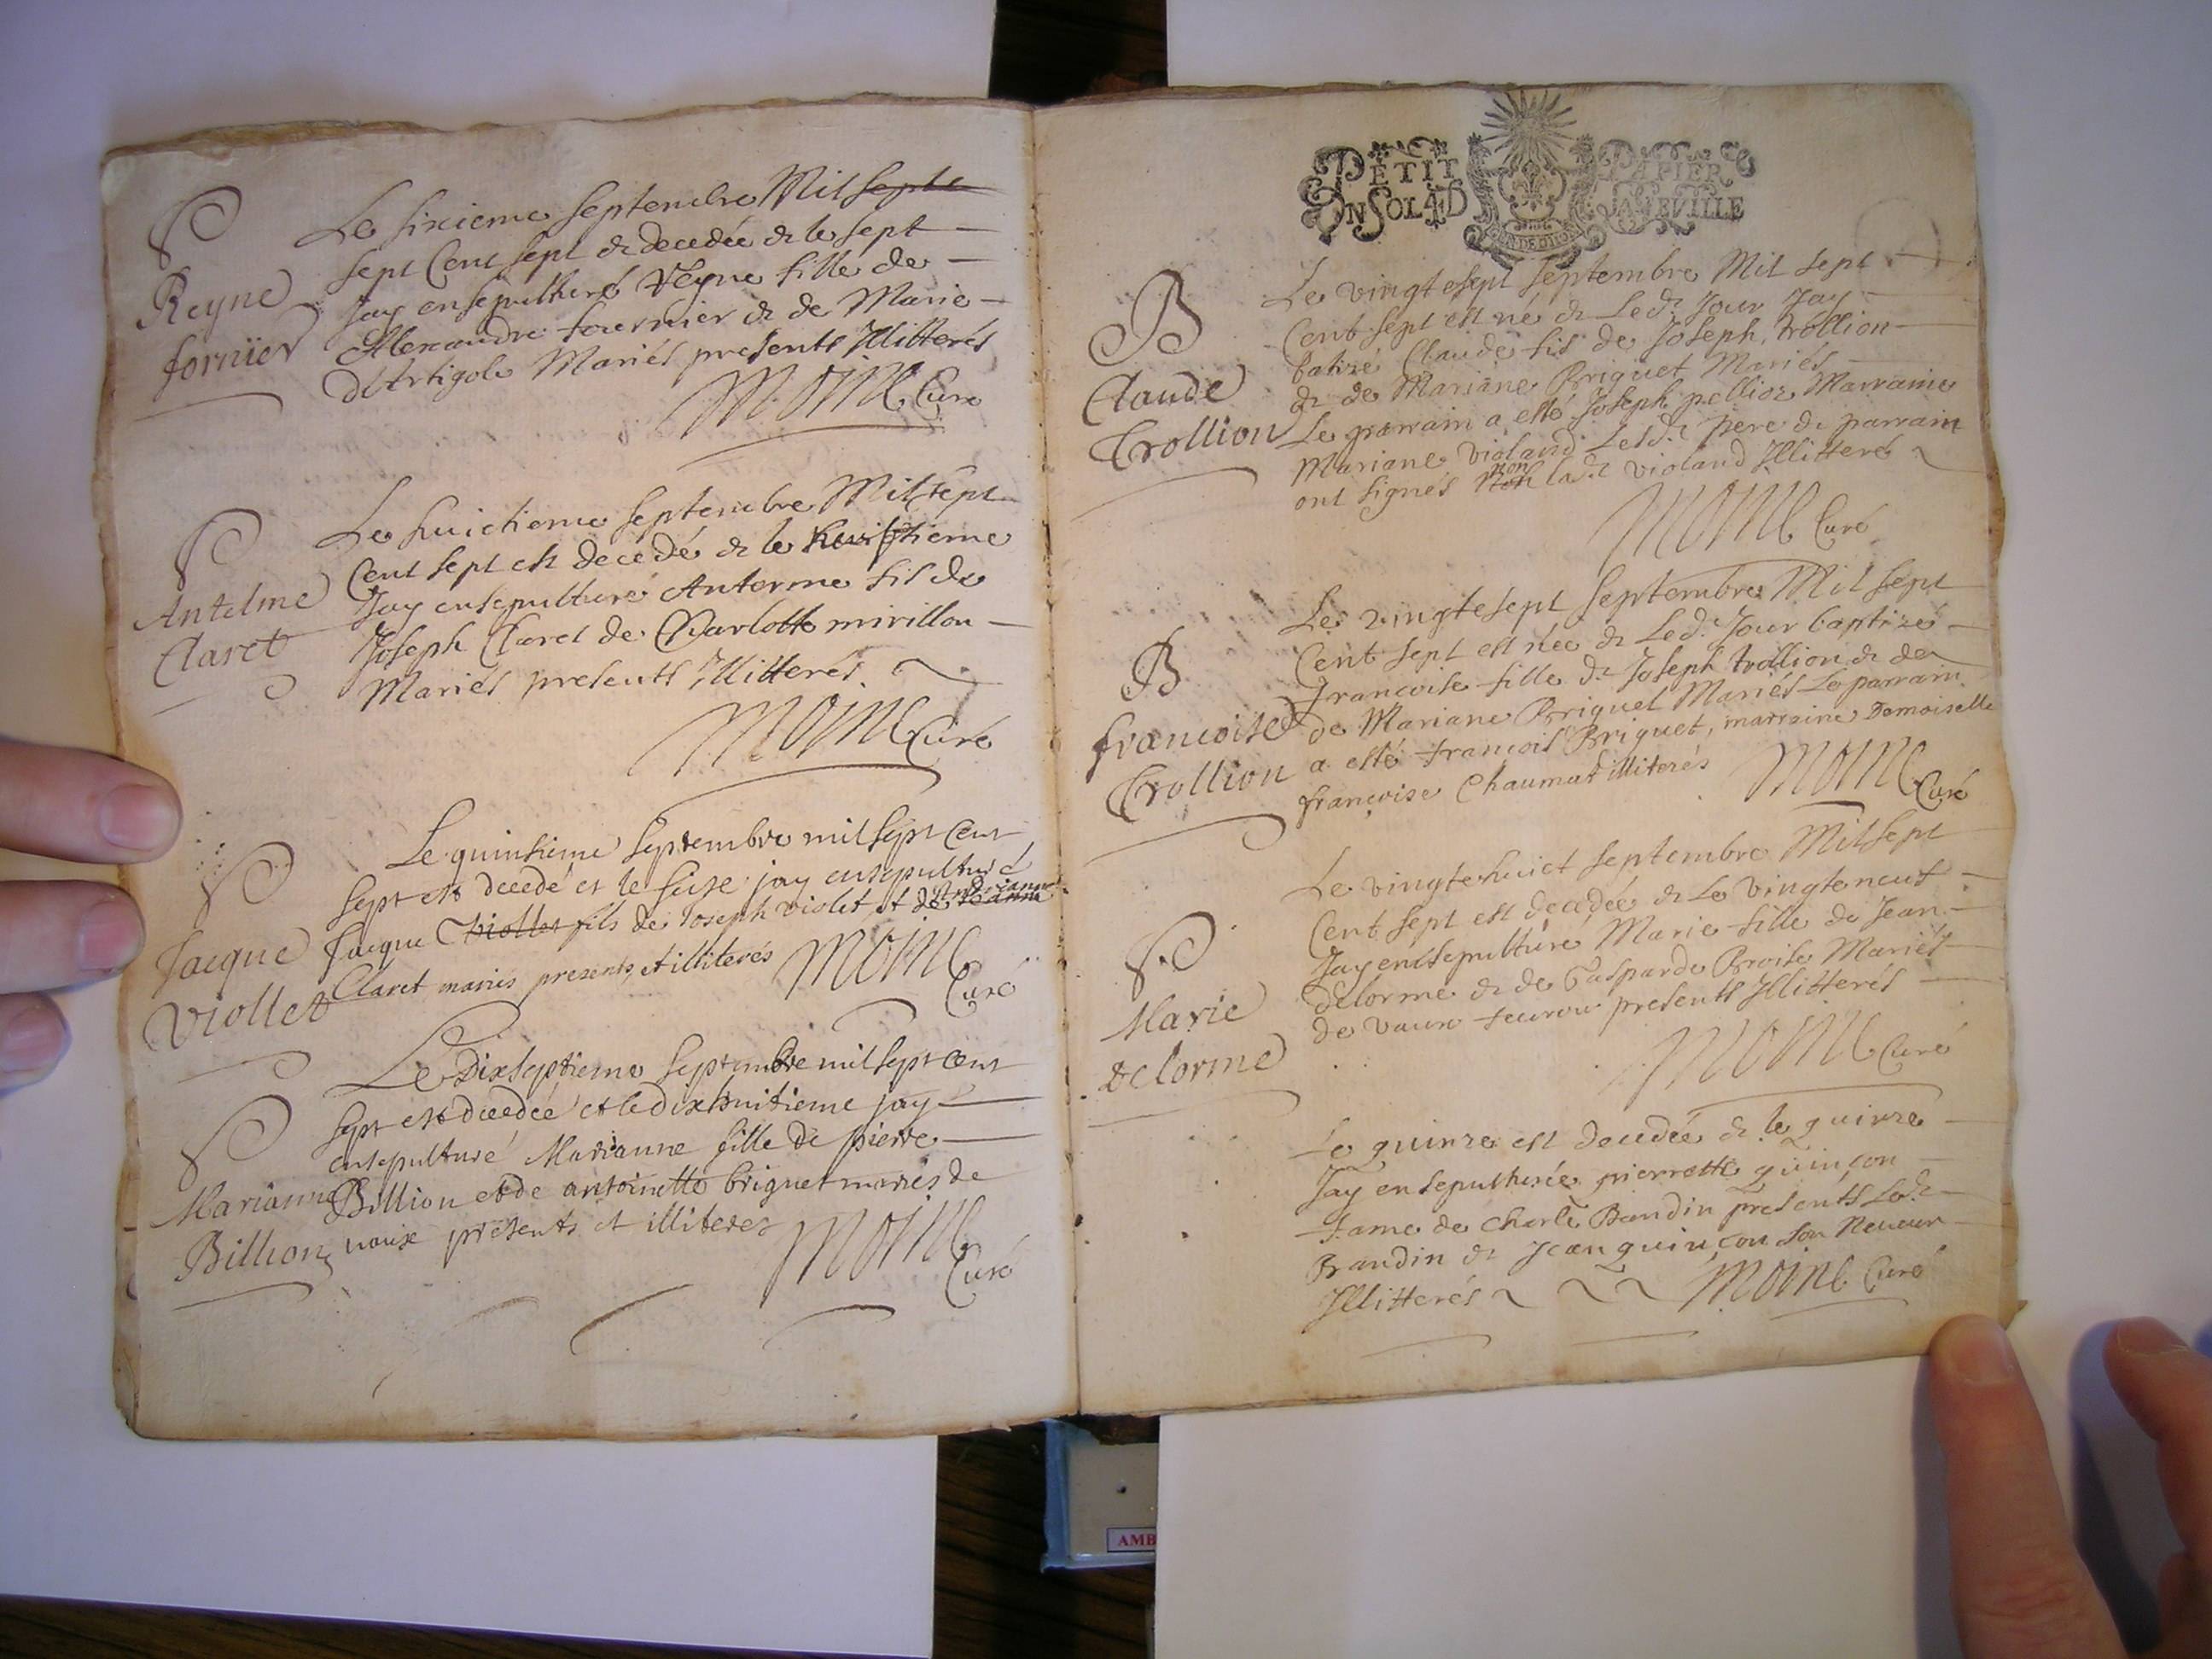 S
Reyne
fornier
Le sixieme septembre Mil septe
sept Cent sept & decedée & le sept
Jay ensepulturé Reyne fille de
Allexandre fournier & de Marie
D'Artigole Mariés presents Illitterés
Moine Curé
S
Antelme
Claret
Le huictieme septembre Mil sept
Cent sept est decedé & le huictieme
Jay ensepulturé Anterme fils de
Joseph Claret de Charlotte mirillon
Mariés presents Illitterés
Moine Curé
S
Jacque
Viollet
Le quinsieme septembre mil sept Cent
sept est decedé et le seize jay ensepulturé
Jacque Viollet fils de Joseph violet et de
Claret mariés presents et illiterés Moine
Curé
S
Marianne
Billion
Le Dixseptieme septembre mil sept cent
sept est decedée et le dixhuitieme jay
ensepulturé Marianne fille de pierre
Billion et de antoinette briguet mariés de
naux presents et illiteres Moine
Curé
PETIT PAPIER
UN SOL 4D LA FEUILLE
B
Claude
Trollion
Le vingtesept septembre Mil sept
Cent sept est né & Led.t Jour Jay
batisé Claude fils de Joseph trollion
& de Mariane Briguet Mariés
Le parrain a esté Joseph pellion Marraine
Mariane violand Lesd.t pere & parrain
ont signés non
non lad.t violand Illitteré
Moine Curé
B
francoise
Trollion
Le vingtesept septembre Mil sept
Cent sept est née & Led.t Jour baptizé
francoise fille de Joseph trollion & de
de Mariane Briguet Mariés Le parrain
a esté françois Briguet, marraine Demoiselle
françoise Chaumat illiterés Moine
Curé
S
Marie
delorme
Le vingtehuict septembre Mil sept
Cent sept est decedée & Le vingteneuf
Jay ensepulturé Marie fille de Jean
delorme & de Gasparde Broise Mariés
de vaux presents Illitterés
Moine Curé
Le quinze est decedée & le quinze
Jay ensepulturée pierrette quinson
fame de Charle Baudin presents Led.t
Baudin & Jean quinçon son Neueur
Illitterés Moine Curé
AMB